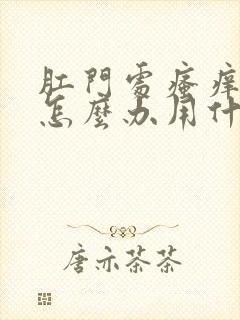 肛門處瘙痒
怎麼办用什
唐亦茶茶